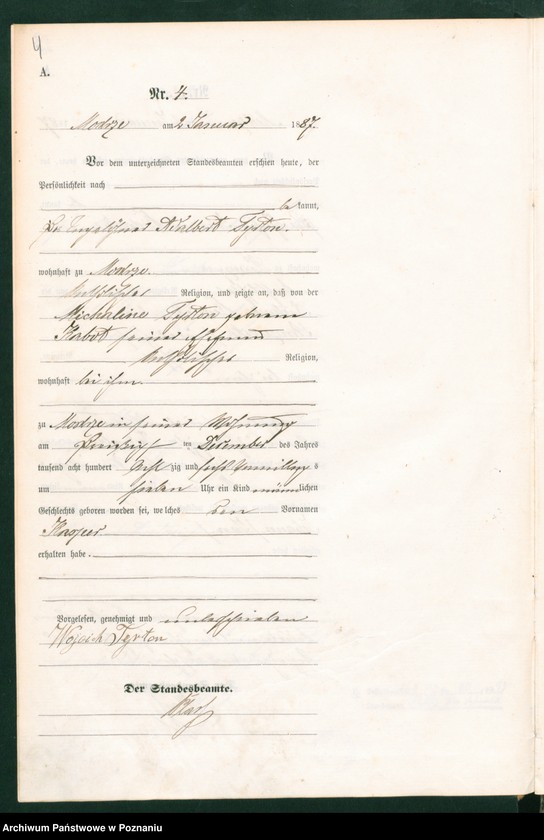 4
A.
Nr. 4.
Modrze am 2 Januar 1887.
Vor dem unterzeichneten Standesbeamten erschien heute, der
Persönlichkeit nach
be kannt,
der Adalbert Tyrton.
wohnhaft zu Modrze
katholischer Religion, und zeigte an, daß von der
Michaline Tyrton geborene
Kabot seiner Ehefrau
katholischer Religion,
wohnhaft bei ihm
zu Modrze in seiner Wohnung
am dreißigsten Dezember des Jahres
tausend acht hundert acht zig und sechs Vormittag s
um sieben Uhr ein Kind männlichen
Geschlechts geboren worden sei, welches den Vornamen
Kasper
erhalten habe.
Vorgelesen, genehmigt und unterschrieben
Wojciech Tyrton
Der Standesbeamte.
Archiwum Państwowe w Poznaniu